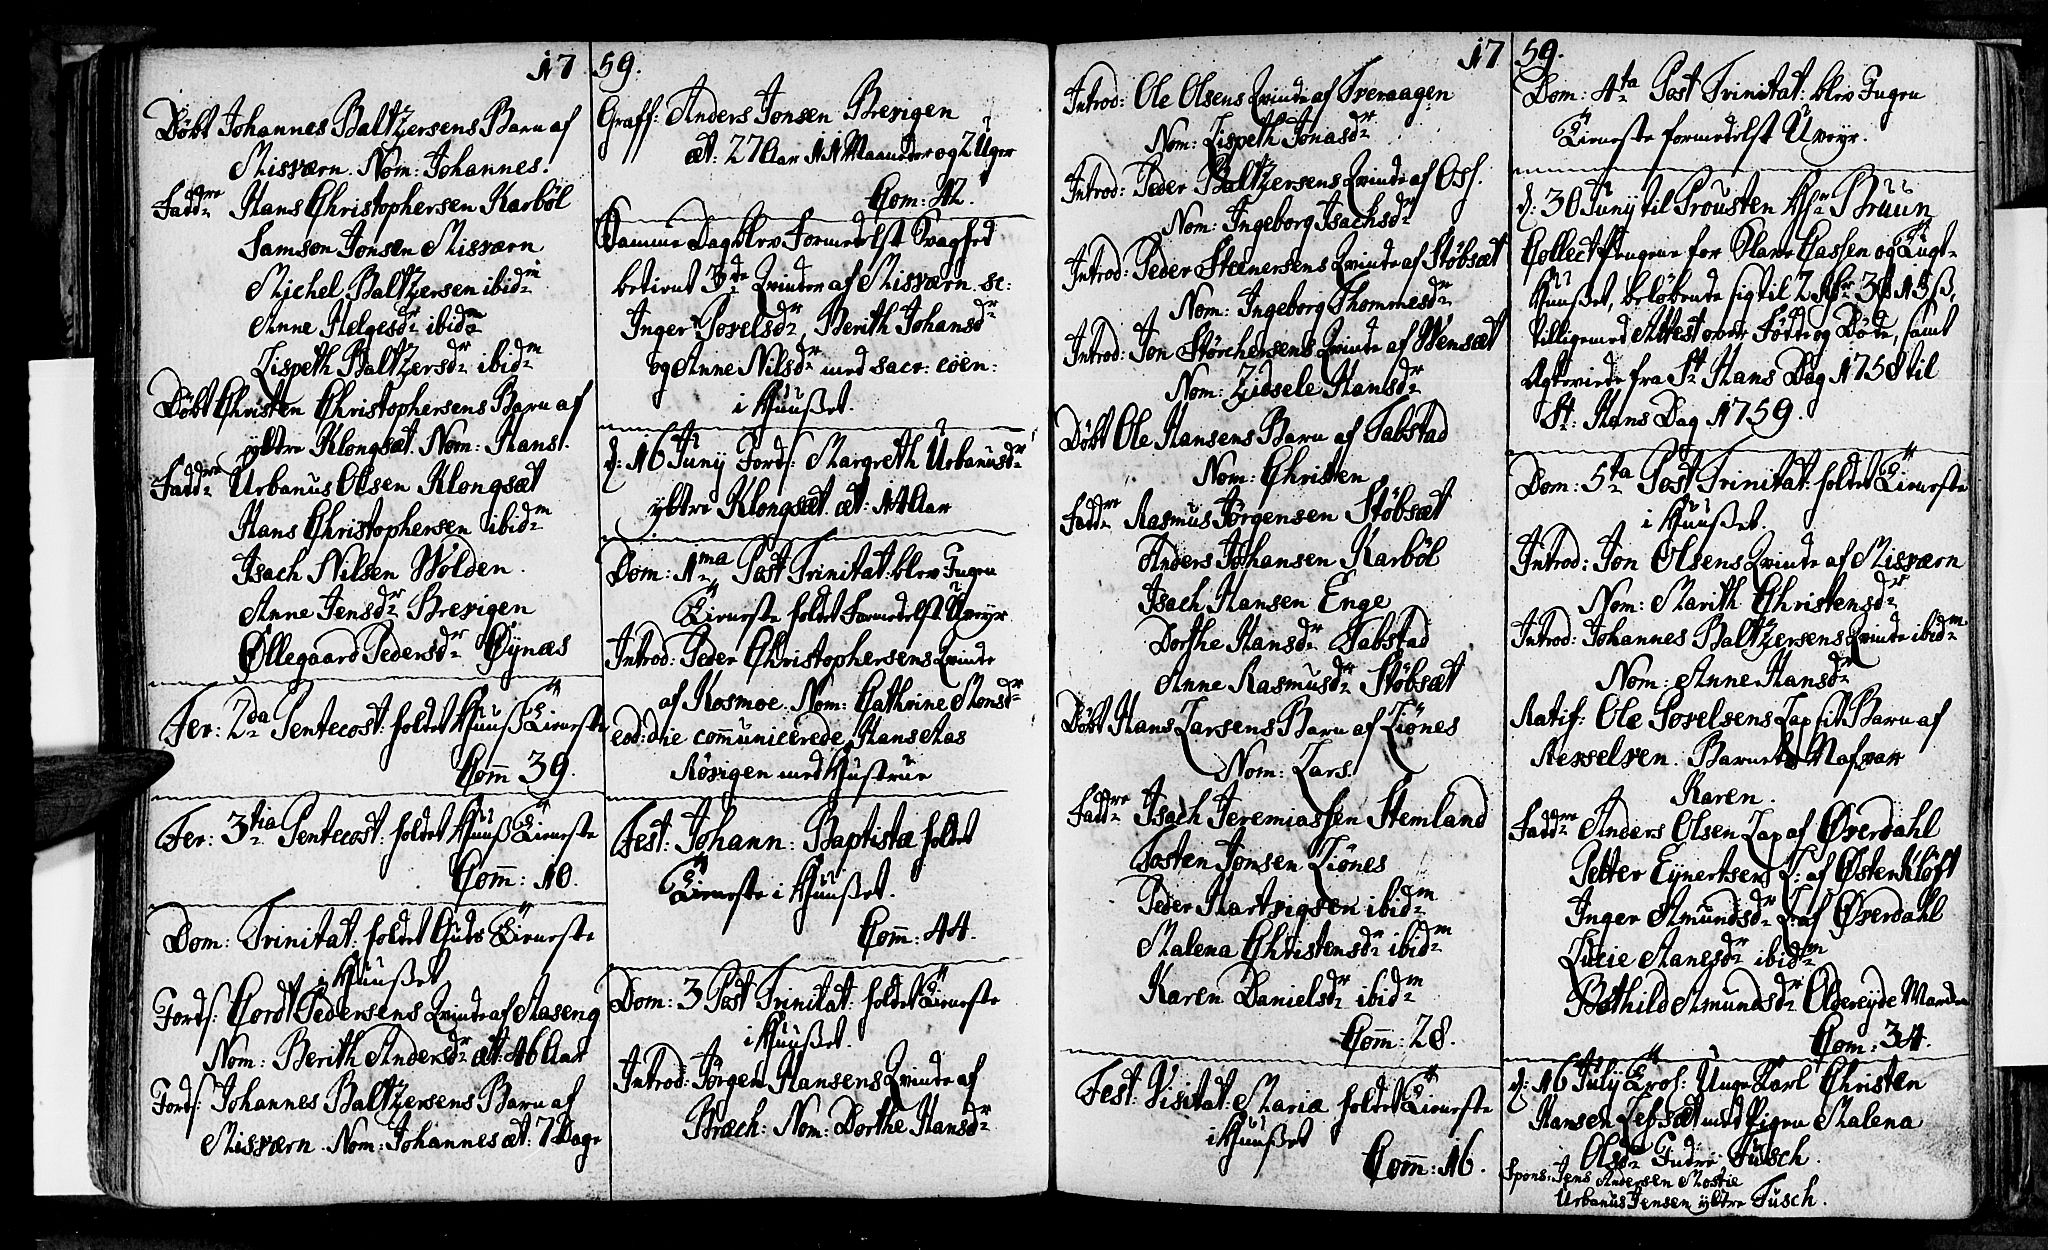 1759.
Døbt Johannes Baltzersens Barn af
Misværn. Nom: Johannes.
Faddre Hans Christophersen Karbøl
Samson Jonsen Misværn
Michel Baltzersen ibidm
Anne Helgesdr ibidm
Lispeth Baltzersdr ibidm
Døbt Christen Christophersens Barn af
yttre Klongsæt. Nom: Hans.
Faddre Urbanus Olsen Klongsæt
Hans Christophersen ibidm
Isach Nilsen Wolden.
Anne Jensdr Brevigen
Øllegaard Pedersdr Øynæs
Fer: 2da Pentecost: holdet Huus Tieneste
Comm 39.
Fer: 3tia Pentecost: holdet Huus Tieneste
Comm: 10.
Dom: Trinitat: holdet Guds Tieneste
i Huuset
Jords: Cordt Pedersens Qvinde af Aaseng
Nom: Berith Andersdr æt: 46 Aar
Jords: Johannes Baltzersens Barn af
Misværn. Nom: Johannes æt: 7 Dage
Graff: Anders Jonsen Brevigen
æt: 27 Aar 11 Maaneder og 2 Uger
Com: 42.
Samme Dag blev Formedelst Svaghed
betient 3de Qvinder af Misværn sc:
Inger Povelsdr, Berith Johansdr
og Anne Nilsdr med sacr: coen:
i Huuset.
d: 16 Juny Jords: Margreth Urbanusdr
yttre Klongsæt æt: 14 Aar
Dom: 1ma Post Trinitat: blev Ingen
Tieneste holdet Formedelst Uveyr
Introd: Peder Christophersens Qvinde
af Kosmoe. Nom: Cathrine Monsdr
eod: die communicerede Hans Aas
Røsvigen med Hustrue
Fest: Johann: Baptistæ holdet
Tieneste i Huuset.
Com: 44.
Dom: 3 Post Trinitat: holdet Tieneste
i Huuset.
Introd: Jørgen Hansens Qvinde af
Bræch: Nom: Dorthe Hansdr
1759.
Introd: Ole Olsens Qvinde af Tveraagen
Nom: Lispeth Jonasdr
Introd: Peder Baltzersens Qvinde af Os.
Nom: Ingeborg Isachsdr
Introd: Peder Steenersens Qvinde af Støbsæt
Nom: Ingeborg Thommesdr
Introd: Jon Størchersens Qvinde af Wensæt
Nom: Zidsele Hansdr
Døbt Ole Hansens Barn af Tabstad
Nom: Christen
Faddre Rasmus Jørgensen Støbsæt
Anders Johansen Karbøl
Isach Hansen Enge
Dorthe Hansdr Tabstad
Anne Rasmusdr Støbsæt
Døbt Hans Larsens Barn af Liønes
Nom: Lars.
Faddre Isach Jeremiassen Stemland
Tosten Jonsen Liønes
Peder Hartvigsen ibidm
Malena Christensdr ibidm
Karen Danielsdr ibidm
Comm: 28.
Fest: Visitat: Maria holdet Tieneste
i Huuset
Comm: 16.
Dom: 4ta Post Trinitat: blev Ingen
Tieneste formedelst Uveyr.
d: 30 Juny til Prousten Hr Bruun
Collect Pengene for Slave Cassen og Tugt-
Huuset, beløbende sig til 2 Rdr 3 15 ß,
tilligemed Attest over Fødte og Døde, samt
Ægteviede fra St Hans Dag 1758 til
St: Hans Dag 1759.
Dom: 5ta Post Trinitat: holdet Tieneste
i Huuset.
Introd: Jon Olsens Qvinde af Misværn
Nom: Marith Christensdr
Introd: Johannes Baltzersens Qvinde ibidm
Nom: Anne Hansdr
Ratif: Ole Povelsens Lap sit Barn af
Revselven. Barnets Nafn var
Karen.
Faddre Anders Olsen Lap af Øverdahl
Petter Eynertsen L: af Østerkløft
Inger Amundsdr L: af Øverdahl
Lucie Hansdr ibidm
Bothild Amundsdr Oldereyde Marken
Com: 34.
d: 16 July Trol: Unge Karl Christen
Hansen Lebsæt med Pigen Malena
Olsdr Indre Fusch.
Spons: Jens Andersen Mostie
Urbanus Jensen yttre Fusch.